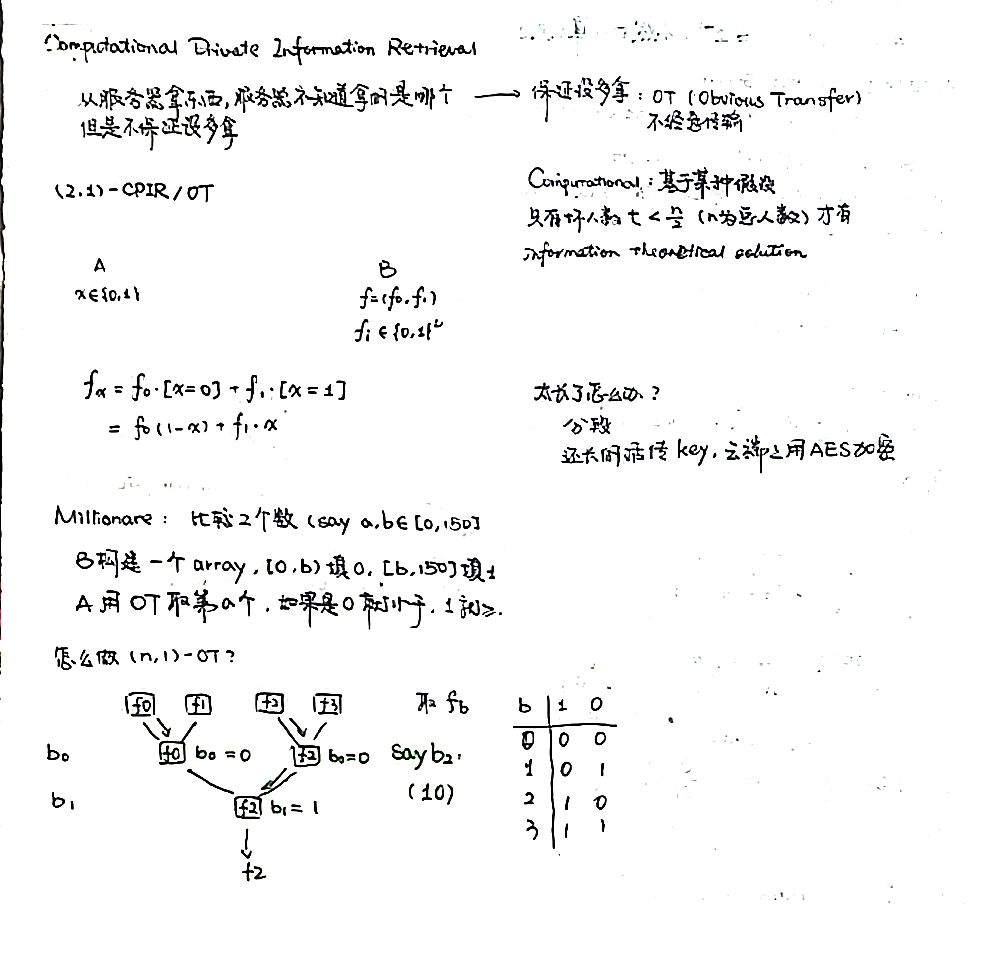 Computational Private Information Retrieval
从服务器拿东西,服务器不知道拿的是哪个
但是不保证没多拿
→ 保证没多拿:OT (Obvious Transfer)
不经意传输
(2,1)-CPIR/OT
Computational:基于某种假设
只有坏人数 t < n/2 (n为总人数) 才有
information theoretical solution
A
x∈{0,1}
B
f=(f0,f1)
fi∈{0,1}^L
fx = f0·[x=0] + f1·[x=1]
= f0(1-x) + f1·x
太长了怎么办?
分段
还长的话传key,云端上用AES加密
Millionare: 比较2个数 (say a,b∈[0,150]
B构造一个array, [0,b)填0, [b,150]填1
A用OT取第a个,如果是0就小于,1就≥.
怎么做(n,1)-OT?
f0 f1 f2 f3
b0 f0 b0=0 f2 b0=0
b1 f2 b1=1
f2
取fb
say b2,
(10)
b 1 0
0 0 0
1 0 1
2 1 0
3 1 1